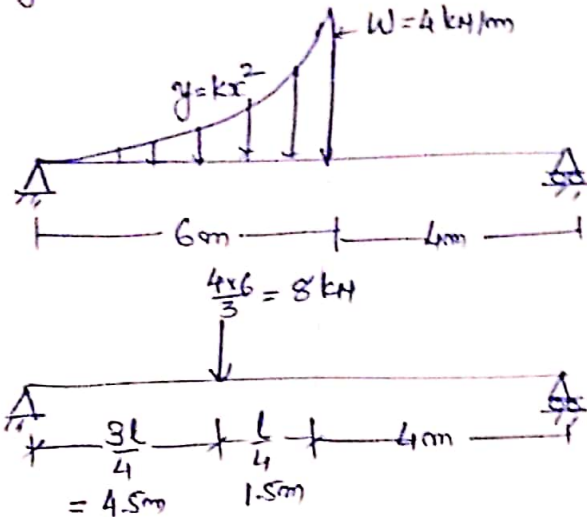 W=4kN/m
y=kx²
6m
4m
4×6/3 = 8kN
3l/4
l/4
4m
= 4.5m
1.5m